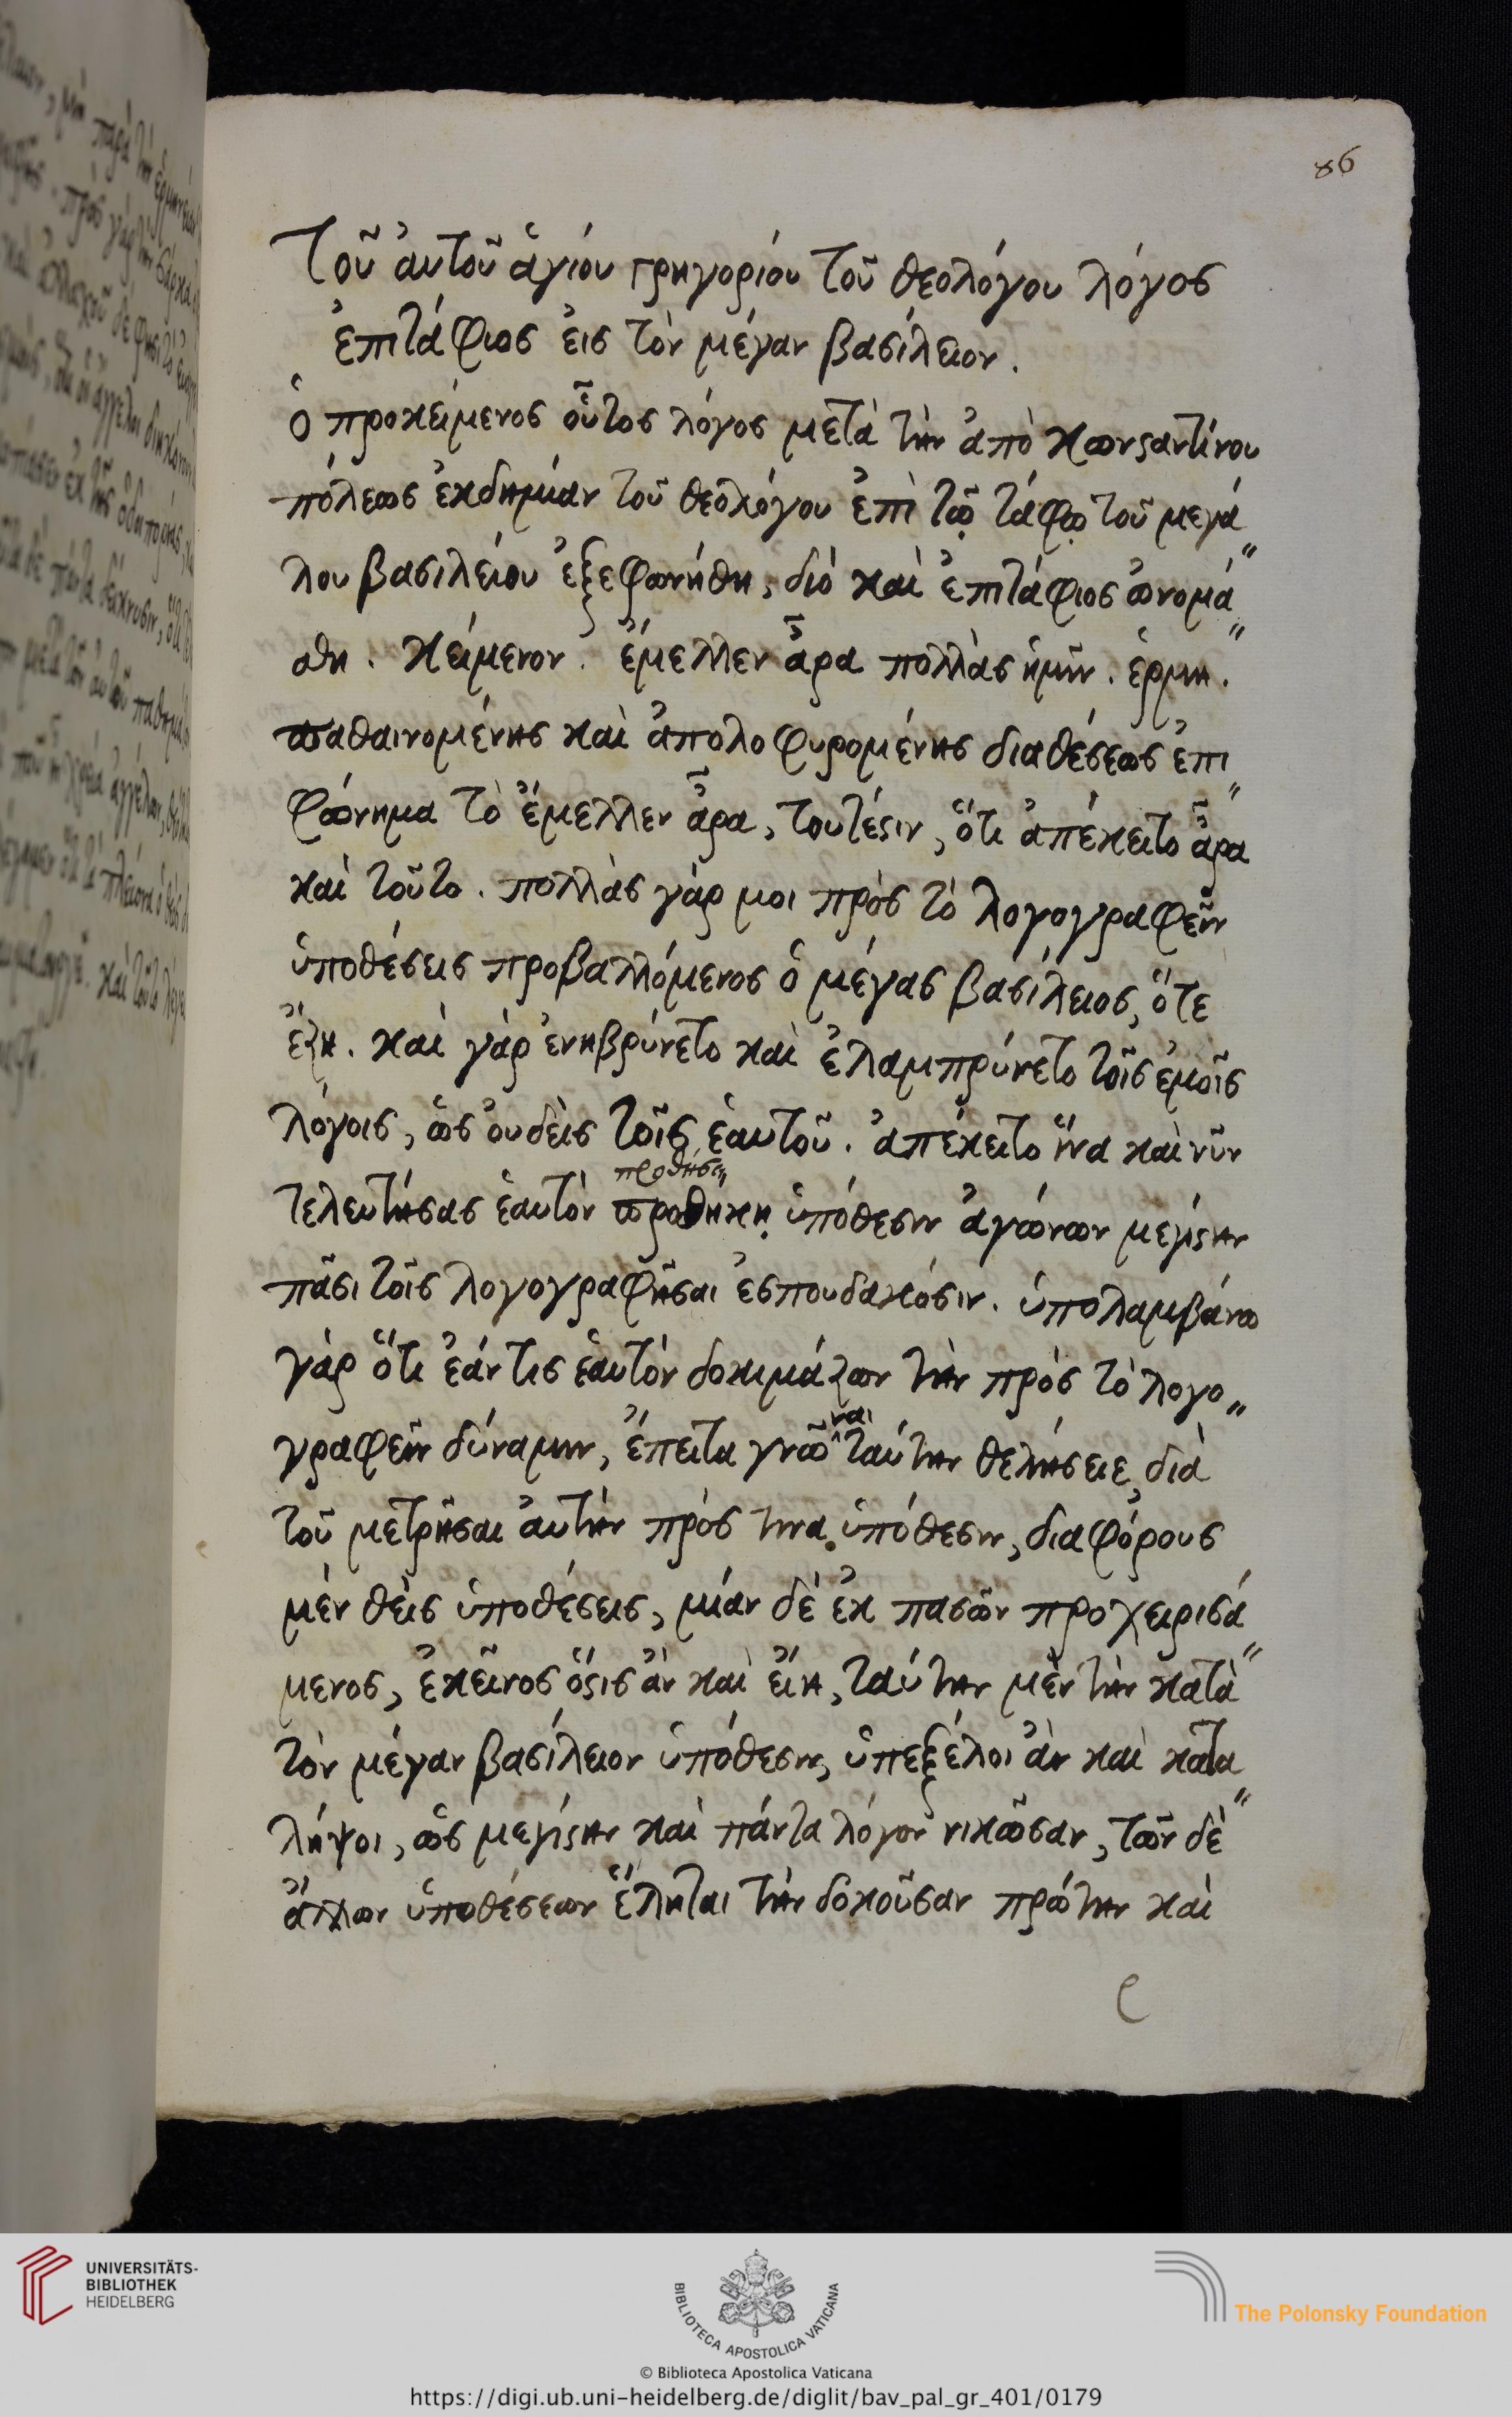 86
Τοῦ ἀυτοῦ ἁγίου γρηγορίου τοῦ θεολόγου λόγος
ἐπιτάφιος ἐις τὸν μέγαν βασίλειον.
ὁ προκείμενος οὗτος λόγος μετὰ τὴν ἀπὸ κωνϛαντίνου
πόλεως ἐκδημίαν τοῦ θεολόγου ἐπὶ τῷ τάφῳ τοῦ μεγά"
λου βασιλείου ἐξεφωνήθη, διὸ καὶ ἐπιτάφιος ὠνομά"
σθη. κείμενον. ἔμελλεν ἆρα πολλὰς ἡμῖν. ἑρμη.
παθαινομένης καὶ ἀπολοφυρομένης διαθέσεως ἐπι"
φώνημα τὸ ἔμελλεν ἆρα, τουτέϛιν, ὅτι ἀπέκειτο ἆρα
καὶ τοῦτο. πολλὰς γάρ μοι πρὸς τὸ λογογραφεῖν
ὑποθέσεις προβαλλόμενος ὁ μέγας βασίλειος, ὅτε
ἔζη. καὶ γὰρ ἐνηβρύνετο καὶ ἐλαμπρύνετο τοῖς ἐμοῖς
λόγοις, ὡς ὀυδεὶς τοῖς ἑαυτοῦ. ἀπέκειτο ἵνα καὶ νῦν
προθήσει"
τελευτήσας ἑαυτὸν προθήκῃ ὑπόθεσιν ἀγώνων μεγίϛην
πᾶσι τοῖς λογογραφῆσαι ἐσπουδακόσιν. ὑπολαμβάνω
γὰρ ὅτι ἐάν τις ἑαυτὸν δοκιμάζων τὴν πρὸς τὸ λογο"
γραφεῖν δύναμιν, ἔπειτα γνῶναι ταύτην θελήσειε διὰ
τοῦ μετρῆσαι ἀυτὴν πρός τινα ὑπόθεσιν, διαφόρους
μὲν θεὶς ὑποθέσεις, μίαν δὲ ἐκ πασῶν προχειρισά"
μενος, ἐκεῖνος ὅϛις ἂν καὶ εἴη, ταύτην μὲν τὴν κατὰ
τὸν μέγαν βασίλειον ὑπόθεσιν, ὑπεξέλοι ἂν καὶ κατα"
λήψοι, ὡς μεγίϛην καὶ πάντα λόγον νικῶσαν, τῶν δὲ
ἄλλων ὑποθέσεων ἕληται τὴν δοκοῦσαν πρώτην καὶ
UNIVERSITÄTS-
BIBLIOTHEK
HEIDELBERG
BIBLIOTECA APOSTOLICA VATICANA
© Biblioteca Apostolica Vaticana
The Polonsky Foundation
https://digi.ub.uni-heidelberg.de/diglit/bav_pal_gr_401/0179